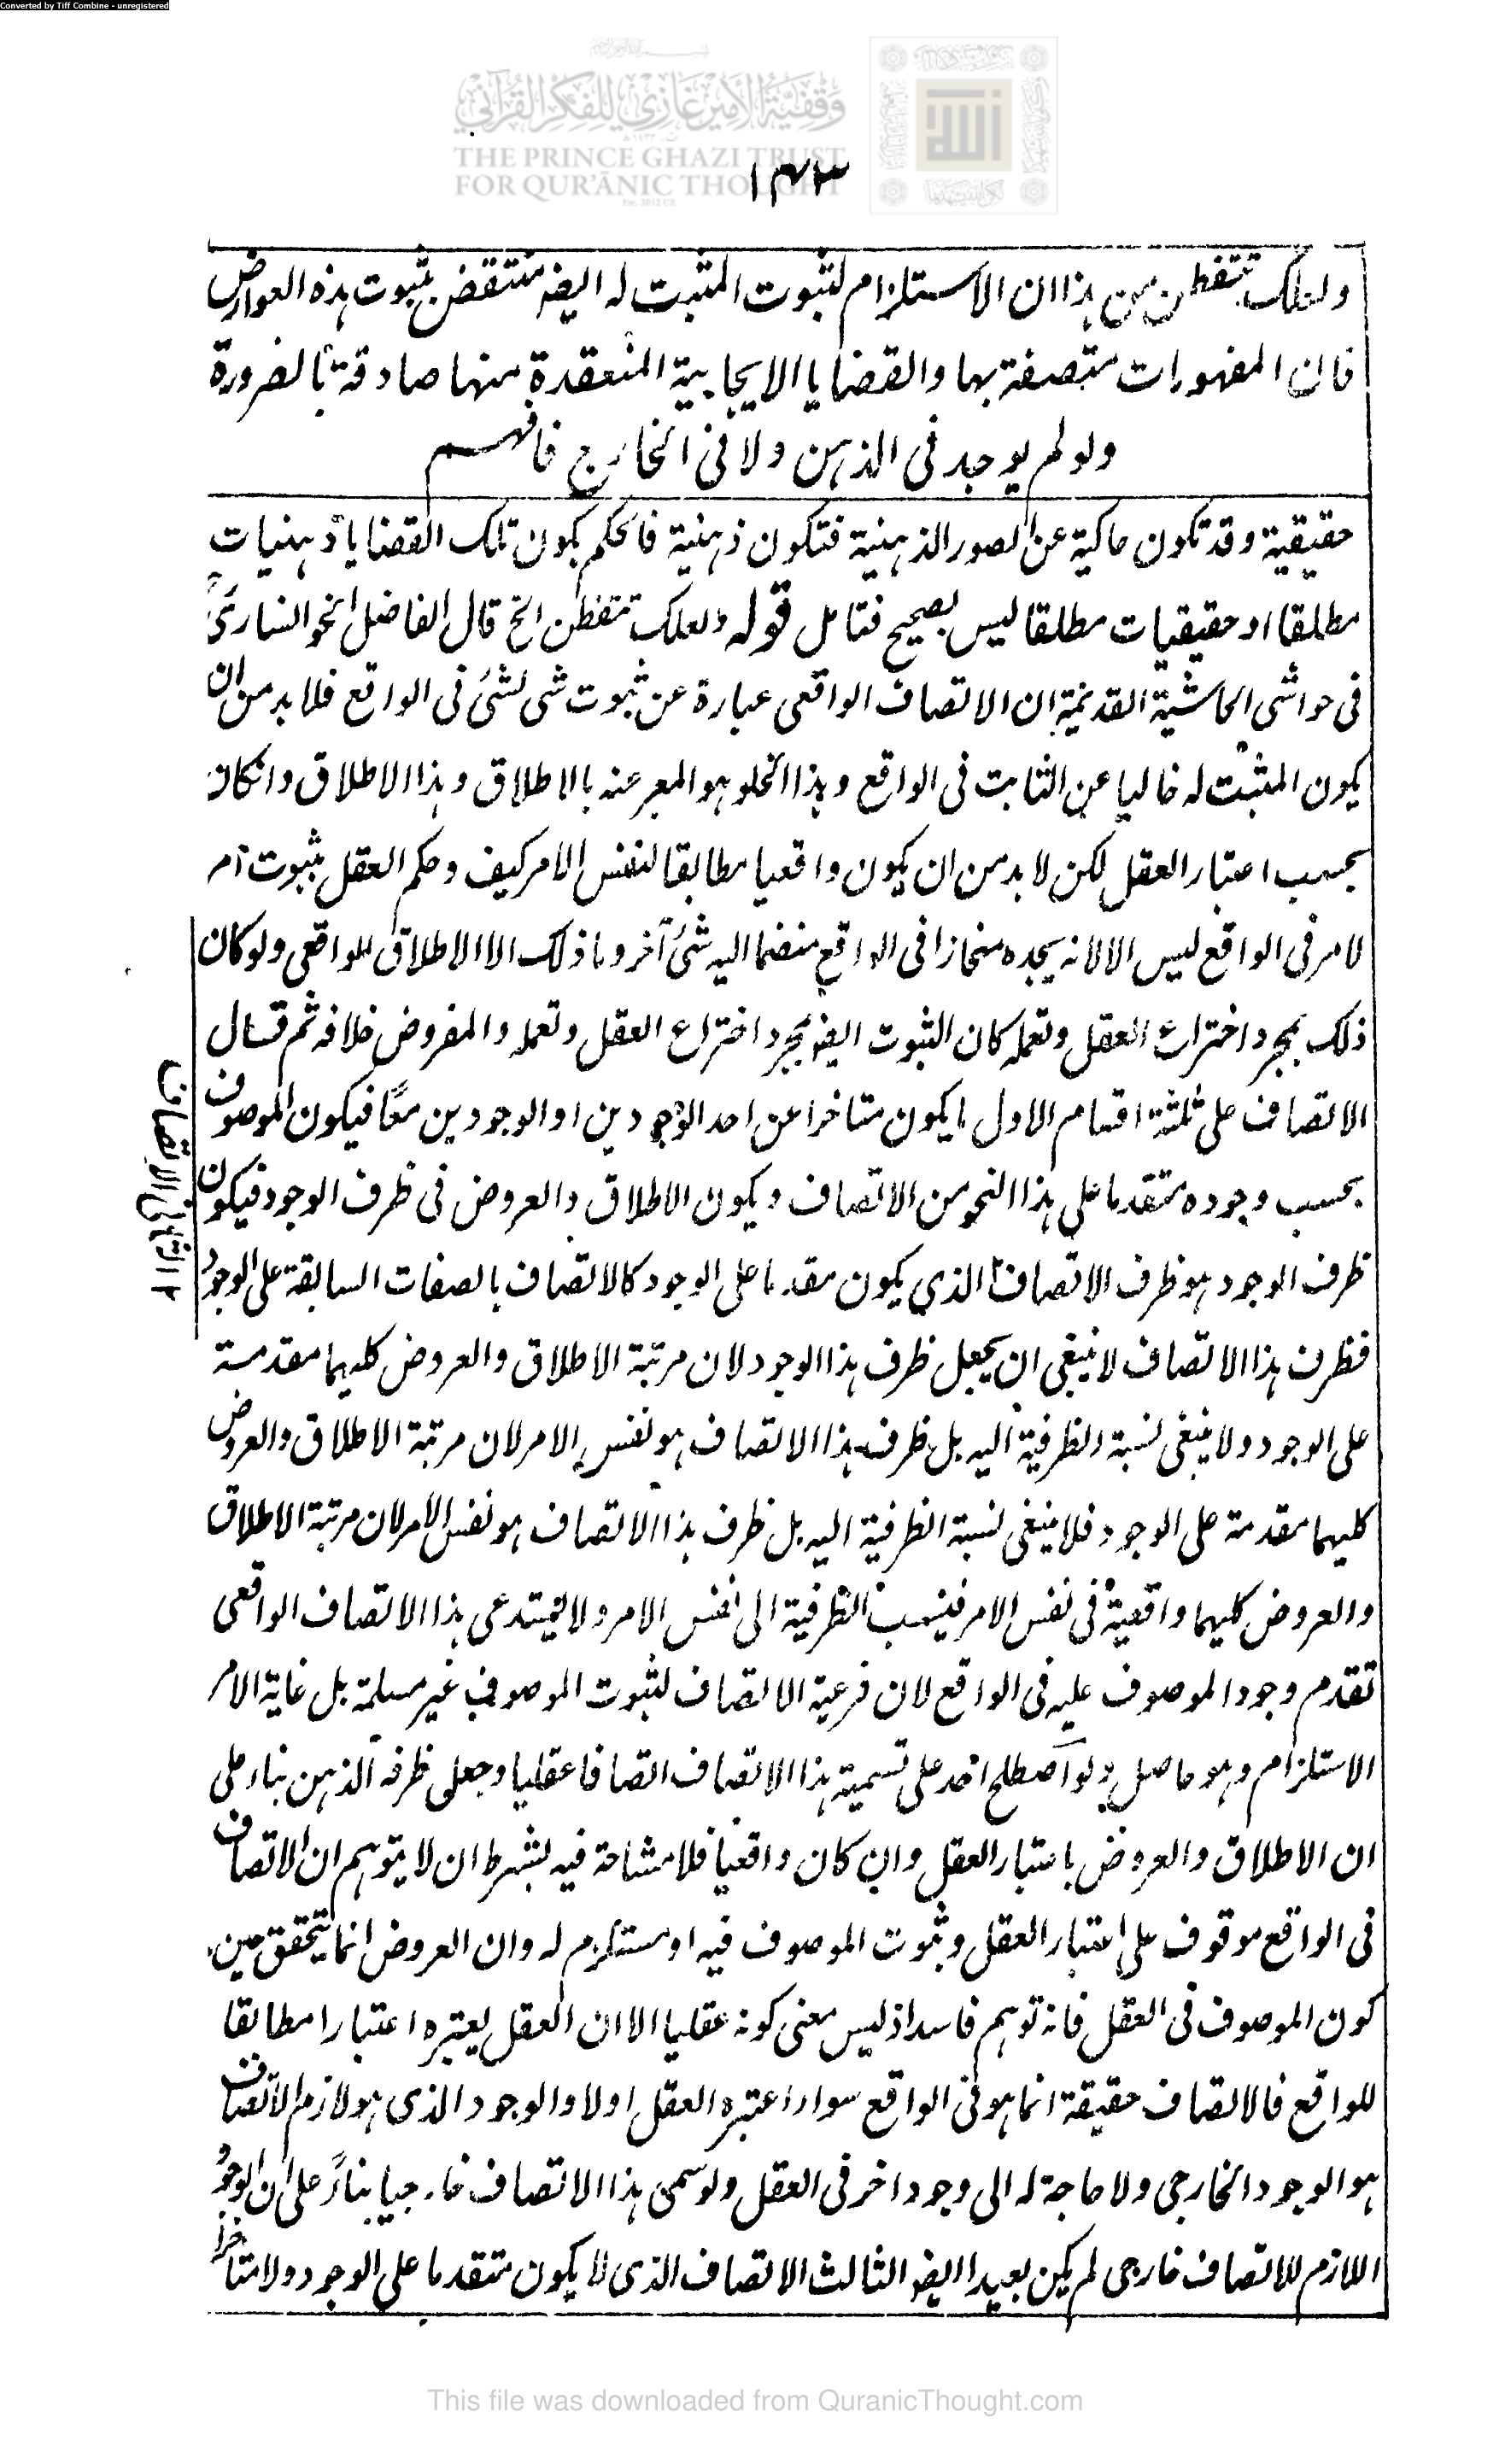 Converted by Tiff Combine - unregistered
وقفية الأمير غازي للفكر القرآني
THE PRINCE GHAZI TRUST
FOR QUR'ĀNIC THOUGHT
Est. 2012 CE
١٤٣
ولعلك تتفطن من هذا ان الاستلزام لثبوت المثبت له ايضا منتقض بثبوت هذه العوارض
فان المفهومات متصفة بها والقضايا الايجابية المنعقدة منها صادقة بالضرورة
ولو لم يوجد فى الذهن ولا فى الخارج فافهم
حقيقية وقد تكون حاكية عن الصور الذهنية فتكون ذهنية فالحكم بكون تلك القضايا ذهنيات
مطلقا او حقيقيات مطلقا ليس بصحيح فتامل قوله ولعلك تتفطن الخ قال الفاضل الخوانسارى
فى حواشى الحاشية القديمة ان الاتصاف الواقعى عبارة عن ثبوت شى لشئ فى الواقع فلا بد من ان
يكون المثبت له خاليا عن الثابت فى الواقع وهذا الخلو هو المعبر عنه بالاطلاق وهذا الاطلاق وانكان
بحسب اعتبار العقل لكن لا بد من ان يكون واقعيا مطابقا لنفس الامر كيف وحكم العقل بثبوت امر
لامر فى الواقع ليس الا لانه يجده منحازا فى الواقع منضما اليه شئ آخر وما ذلك الا الاطلاق الواقعى ولو كان
ذلك بمجرد اختراع العقل وتعمله كان الثبوت ايضا بمجرد اختراع العقل وتعمله والمفروض خلافه ثم قال
الاتصاف على ثلثة اقسام الاول ما يكون متاخرا عن احد الوجودين او الوجودين معا فيكون الموصوف
بحسب وجوده متقدما على هذا النحو من الاتصاف ويكون الاطلاق والعروض فى ظرف الوجود فيكون
ظرف الوجود هو ظرف الاتصاف الذي يكون مقدما على الوجود كالاتصاف بالصفات السابقة على الوجود
فظرف هذا الاتصاف لا ينبغى ان يجعل ظرف هذا الوجود لان مرتبة الاطلاق والعروض كليهما مقدمة
على الوجود ولا ينبغى نسبة الظرفية اليه بل ظرف هذا الاتصاف هو نفس الامر لان مرتبة الاطلاق والعروض
كليهما مقدمة على الوجود فلا ينبغى نسبة الظرفية اليه بل ظرف هذا الاتصاف هو نفس الامر لان مرتبة الاطلاق
والعروض كليهما واقعية فى نفس الامر فينسب الظرفية الى نفس الامر ولا يستدعى هذا الاتصاف الواقعى
تقدم وجود الموصوف عليه فى الواقع لان فرعية الاتصاف لثبوت الموصوف غير مسلمة بل غاية الامر
الاستلزام وهو حاصل ولو اصطلح احد على تسمية هذا الاتصاف اتصافا عقليا وجعل ظرفه الذهن بناء على
ان الاطلاق والعروض باعتبار العقل وان كان واقعيا فلا مشاحة فيه بشرط ان لا يتوهم ان الاتصاف
فى الواقع موقوف على اعتبار العقل وثبوت الموصوف فيه او مستلزم له وان العروض انما يتحقق حين
كون الموصوف فى العقل فانه توهم فاسد اذ ليس معنى كونه عقليا الا ان العقل يعتبره اعتبارا مطابقا
للواقع فالاتصاف حقيقة انما هو فى الواقع سواء اعتبره العقل اولا والوجود الذى هو لازم الاتصاف
هو الوجود الخارجى ولا حاجة له الى وجود اخر فى العقل ولو سمى هذا الاتصاف خارجيا بناءً على ان الوجود
اللازم للاتصاف خارجى لم يكن بعيدا ايضا الثالث الاتصاف الذى لا يكون متقدما على الوجود ولا متاخرا
١٢ الثانى الاتصاف
This file was downloaded from QuranicThought.com